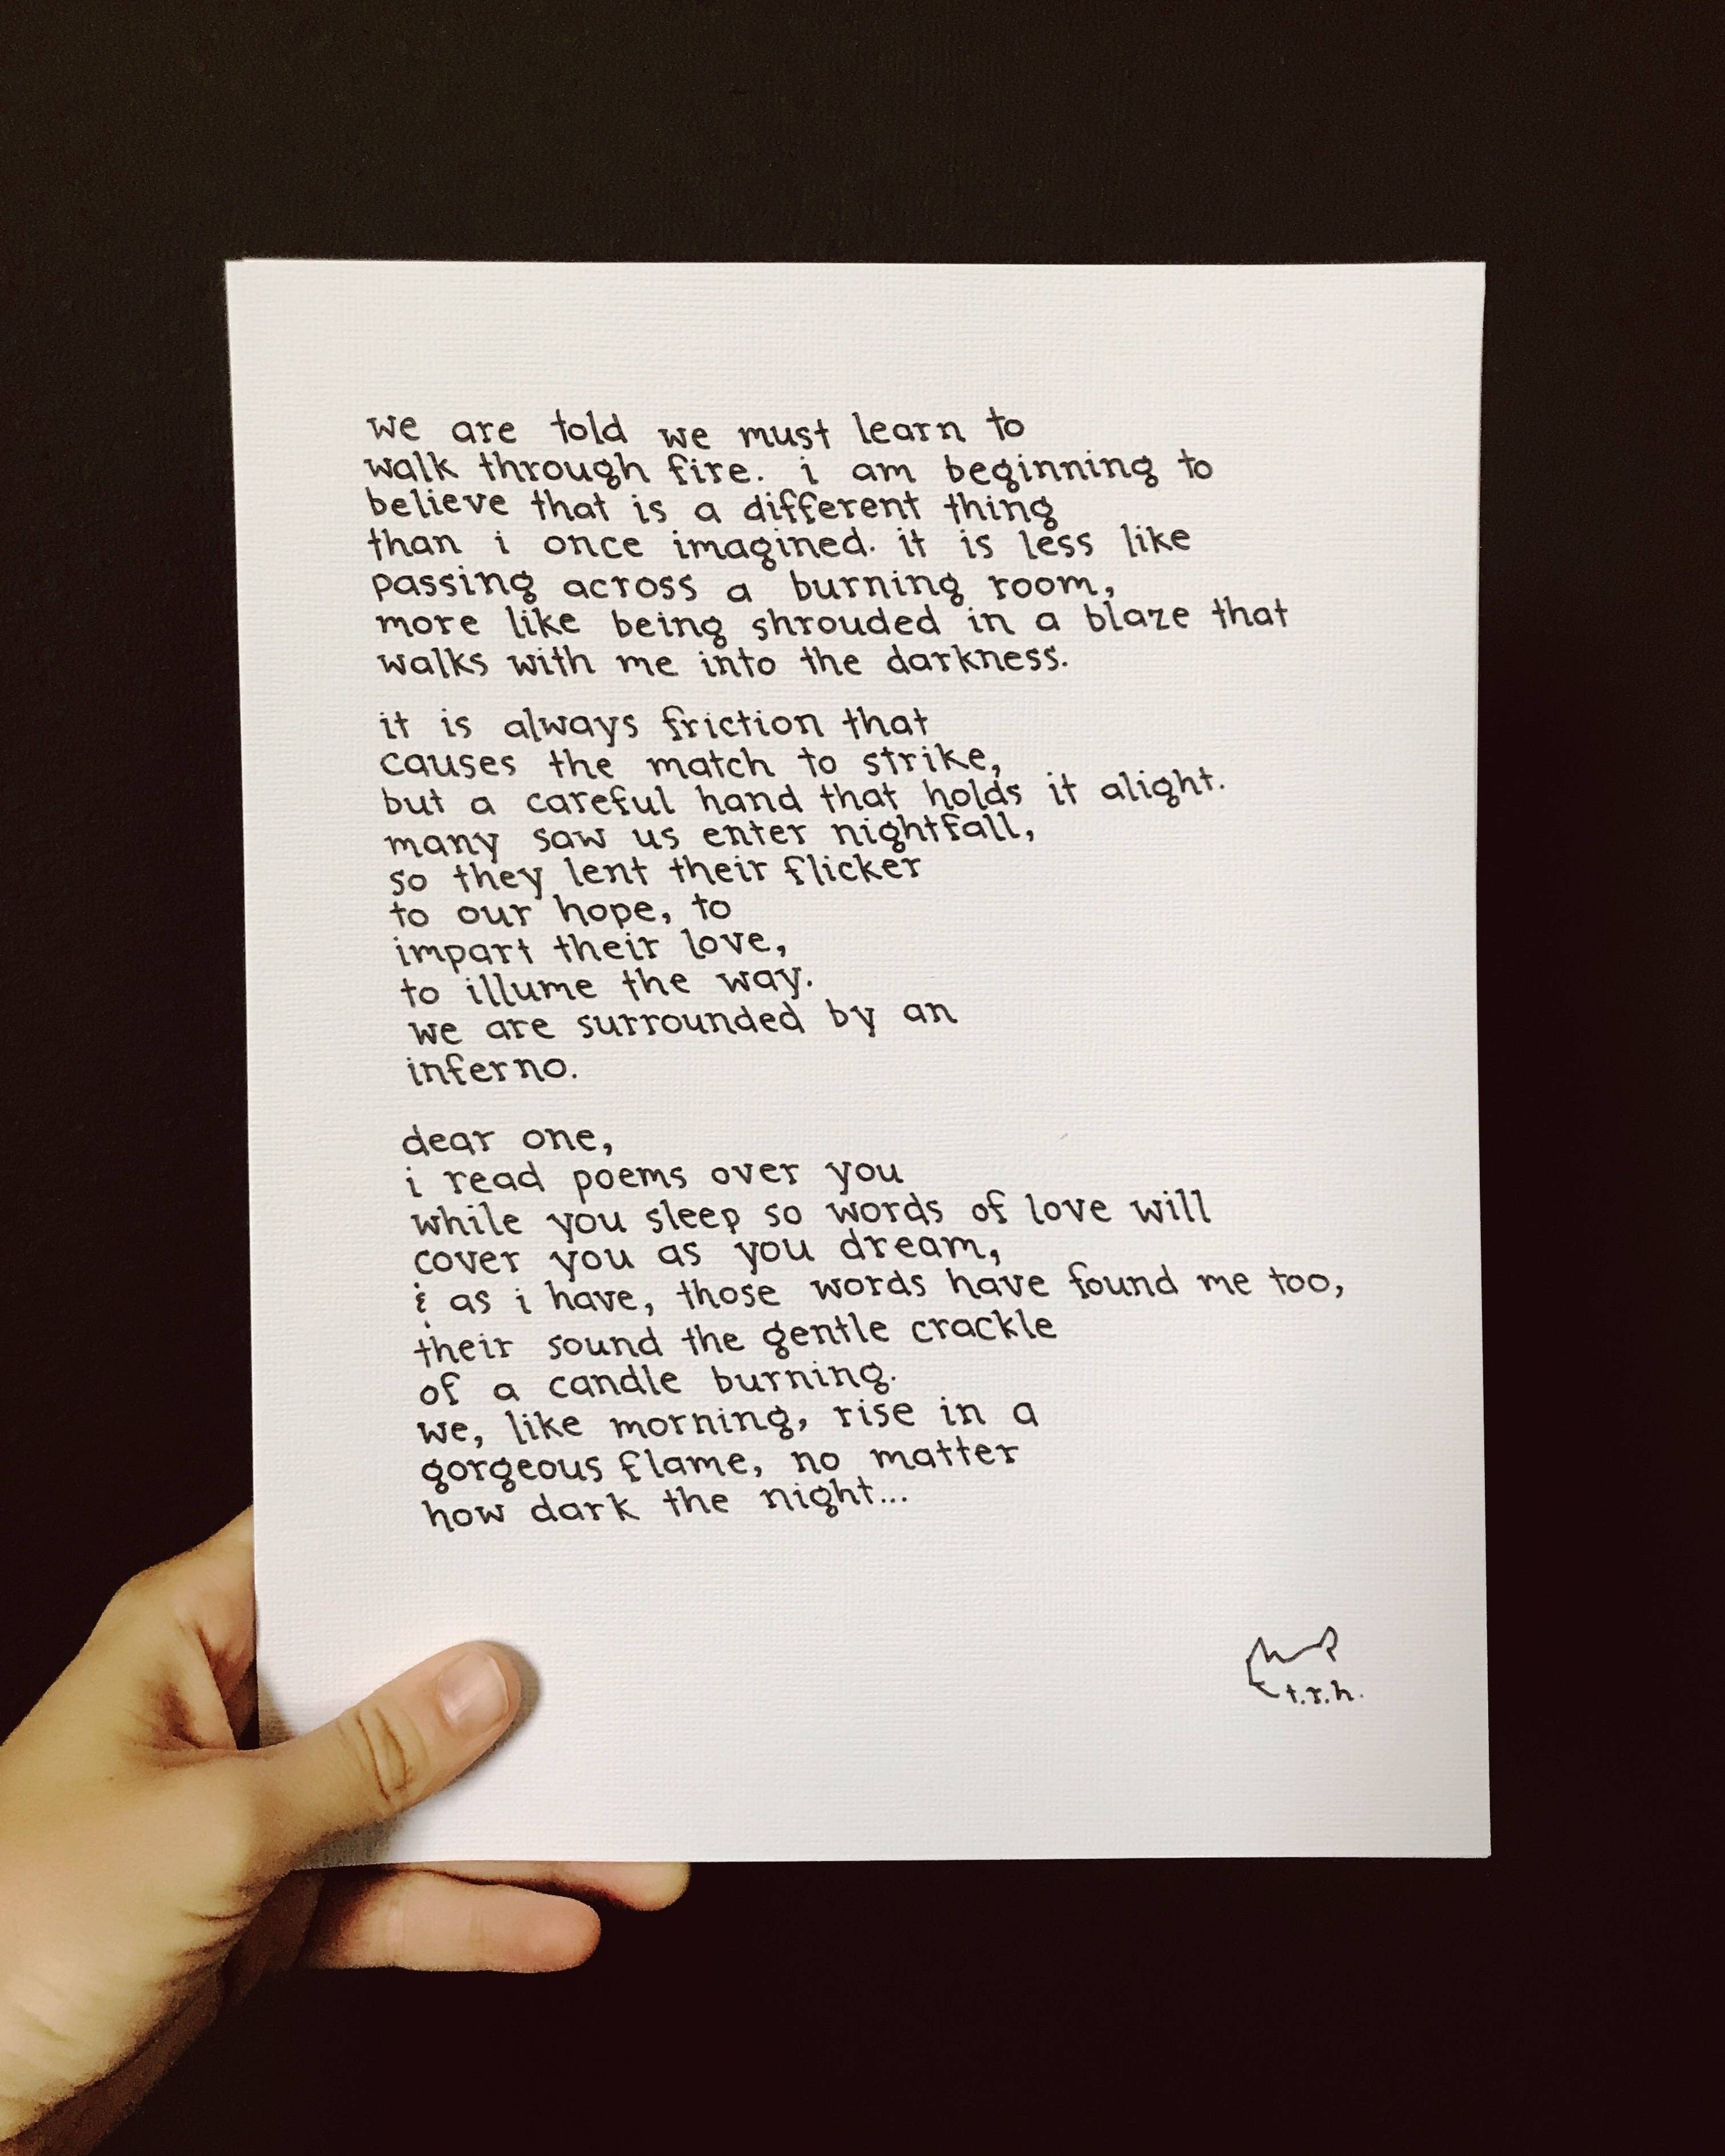 we are told we must learn to
walk through fire. i am beginning to
believe that is a different thing
than i once imagined. it is less like
passing across a burning room,
more like being shrouded in a blaze that
walks with me into the darkness.
it is always friction that
causes the match to strike,
but a careful hand that holds it alight.
many saw us enter nightfall,
so they lent their flicker
to our hope, to
impart their love,
to illume the way.
we are surrounded by an
inferno.
dear one,
i read poems over you
while you sleep so words of love will
cover you as you dream,
& as i have, those words have found me too,
their sound the gentle crackle
of a candle burning.
we, like morning, rise in a
gorgeous flame, no matter
how dark the night...
t.r.h.